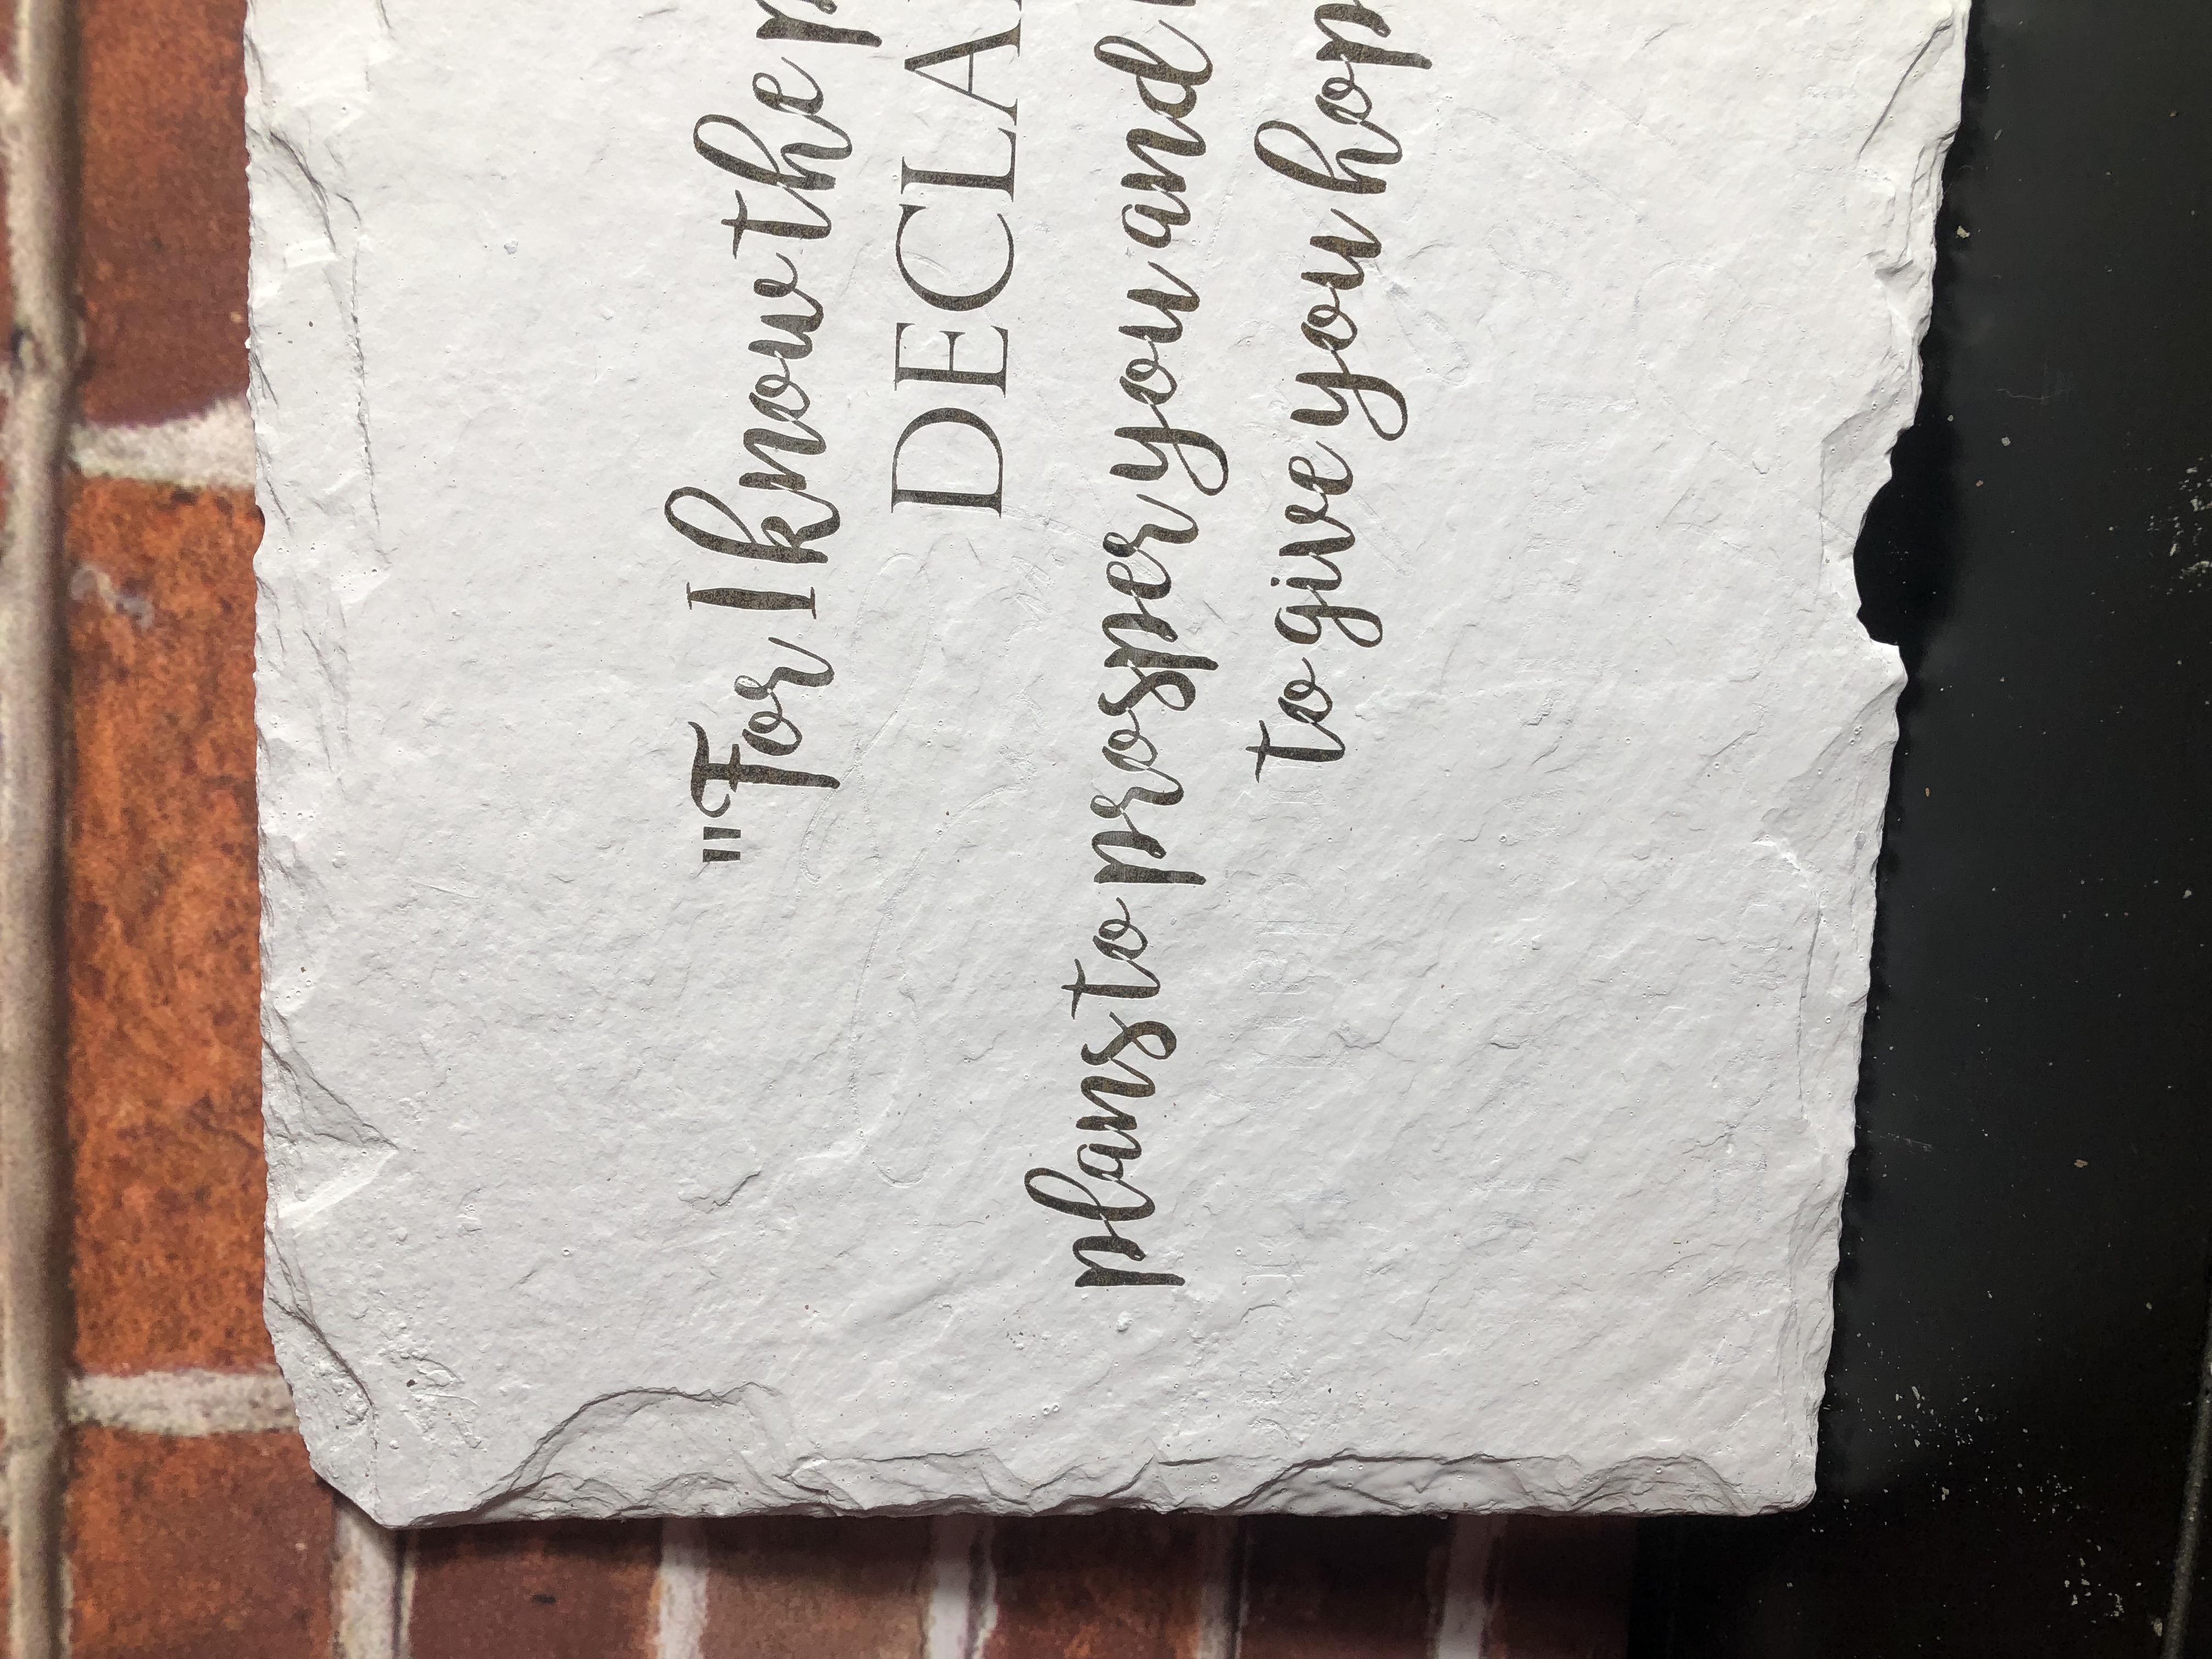 "For I know the
DECLA
plans to prosper you and
to give you hop